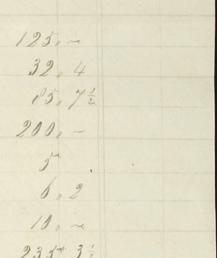 125 „ ~
32 „ 4
85 „ 7½
200 „ ~
5"
6 „ 2
10 „ ~
235" 3½